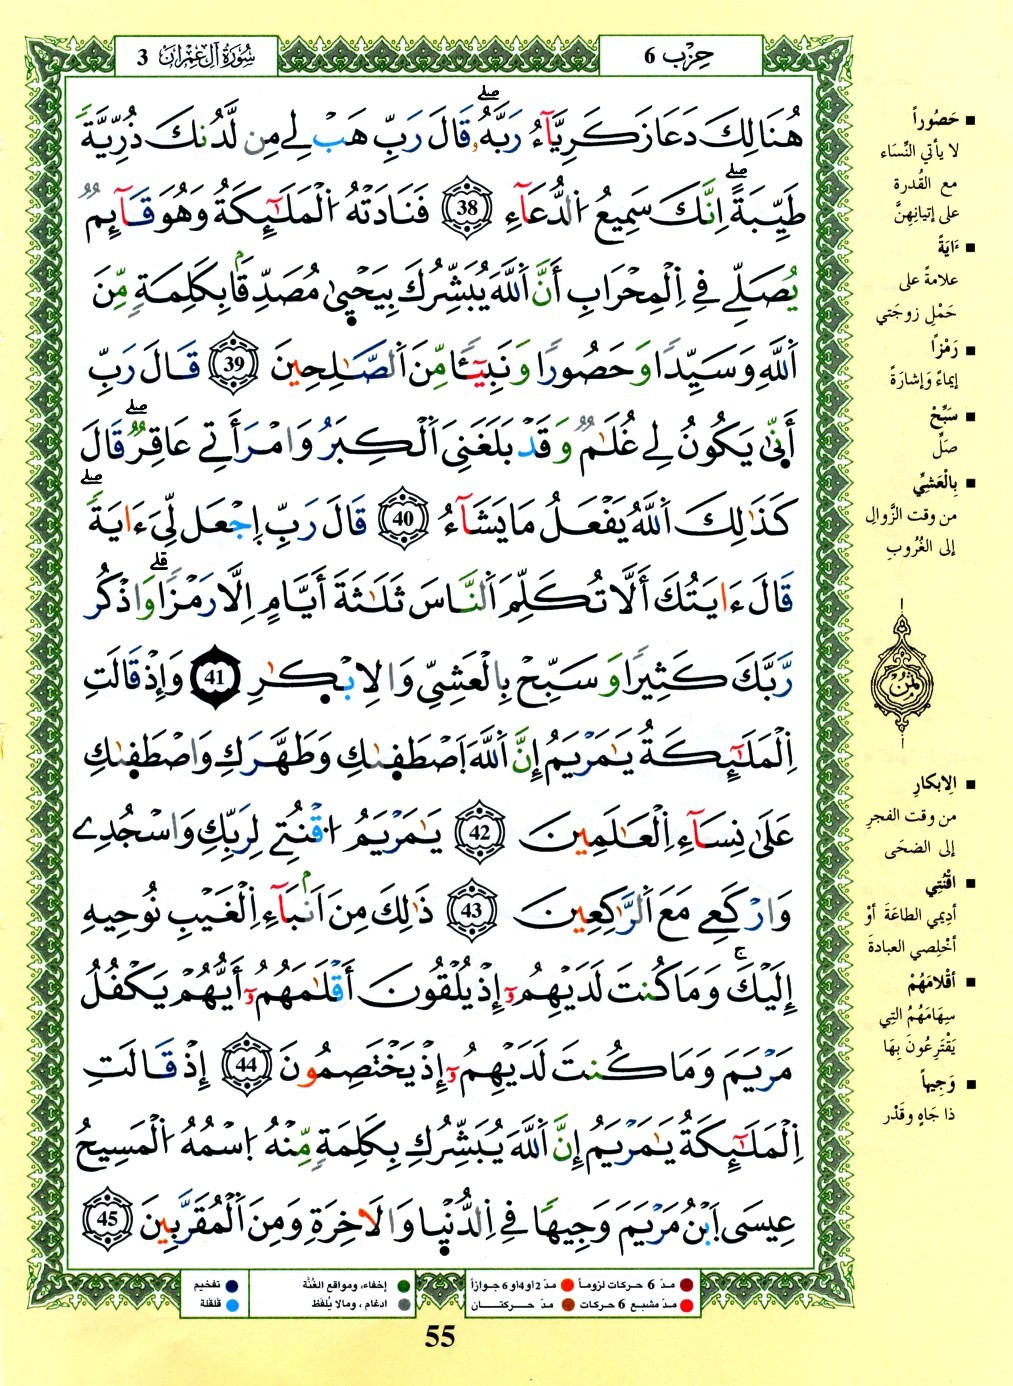 حِزْب 6
سُورَةُ آلِ عِمْرَانَ 3
هُنَالِكَ دَعَا زَكَرِيَّآءُ رَبَّهُۥ صلے قَالَ رَبِّ هَبْ لِے مِن لَّدُنكَ ذُرِّيَّةً
طَيِّبَةً صلے اِنَّكَ سَمِيعُ اُلدُّعَآءِ 38 فَنَادَتْهُ اُلْمَلَٰٓئِكَةُ وَهُوَ قَآئِمٌ
يُصَلِّے فِے اِلْمِحْرَابِ أَنَّ اَللَّهَ يُبَشِّرُكَ بِيَحْيۭيٰ مُصَدِّقاَۢ بِكَلِمَةٍ مِّنَ
اَللَّهِ وَسَيِّداً وَحَصُوراً وَنَبِيٓـٔاً مِّنَ اَلصَّٰلِحِينَ 39 قَالَ رَبِّ
أَنّۭيٰ يَكُونُ لِے غُلَٰمٌ وَقَدْ بَلَغَنِيَ اَلْكِبَرُ وَامْرَأَتِے عَاقِرٌ صلے قَالَ
كَذَٰلِكَ اَللَّهُ يَفْعَلُ مَا يَشَآءُ 40 قَالَ رَبِّ اِجْعَل لِّيَ ءَايَةً صلے
قَالَ ءَايَتُكَ أَلَّا تُكَلِّمَ اَلنَّاسَ ثَلَٰثَةَ أَيَّامٍ اِلَّا رَمْزاً قلے وَاذْكُر
رَّبَّكَ كَثِيراً وَسَبِّحْ بِالْعَشِيِّ وَالِابْكٰ۪رِ 41 وَإِذْ قَالَتِ
اِلْمَلَٰٓئِكَةُ يَٰمَرْيَمُ إِنَّ اَللَّهَ اَصْطَفۭيٰكِ وَطَهَّرَكِ وَاصْطَفۭيٰكِ
عَلَىٰ نِسَآءِ اِلْعَٰلَمِينَ 42 يَٰمَرْيَمُ اُقْنُتِے لِرَبِّكِ وَاسْجُدِے
وَارْكَعِے مَعَ اَلرَّٰكِعِينَ 43 ذَٰلِكَ مِنَ اَنۢبَآءِ اِلْغَيْبِ نُوحِيهِ
إِلَيْكَ ج وَمَا كُنتَ لَدَيْهِمُۥٓ إِذْ يُلْقُونَ أَقْلَٰمَهُمُۥٓ أَيُّهُمْ يَكْفُلُ
مَرْيَمَ وَمَا كُنتَ لَدَيْهِمُۥٓ إِذْ يَخْتَصِمُونَ 44 إِذْ قَالَتِ
اِلْمَلَٰٓئِكَةُ يَٰمَرْيَمُ إِنَّ اَللَّهَ يُبَشِّرُكِ بِكَلِمَةٍ مِّنْهُ اُسْمُهُ اُلْمَسِيحُ
عِيسَى اَبْنُ مَرْيَمَ وَجِيهاً فِے اِلدُّنْي۪ا وَالَاخِرَةِ وَمِنَ اَلْمُقَرَّبِينَ 45
■ حَصُوراً
لا يأتي النِّسَاء
مع القُدرة
على إتيانِهِنَّ
■ ءَايَةً
علامةً على
حَمْلِ زوجَتي
■ رَمْزاً
إيماءً وَإشارَةً
■ سَبِّحْ
صَلِّ
■ بِالْعَشِيِّ
من وقت الزَّوالِ
إلى الغُرُوبِ
ثمن
■ الِابكارِ
من وقت الفجرِ
إلى الضحَى
■ اقْنُتِي
أديمي الطاعَةَ أوْ
أخْلِصي العبادةَ
■ أقْلامَهُمْ
سِهَامَهُمُ التِي
يَقْتَرِعُونَ بِهَا
■ وَجِيهاً
ذا جَاهٍ وقَدْر
مدّ 6 حركات لزوماً
مدّ 2 أو 4 أو 6 جوازاً
إخفاء، ومواقع الغُنَّة
تفخيم
مدّ مشبع 6 حركات
مدّ حركتان
ادغام ، ومالا يُلفَظ
قلقلة
55